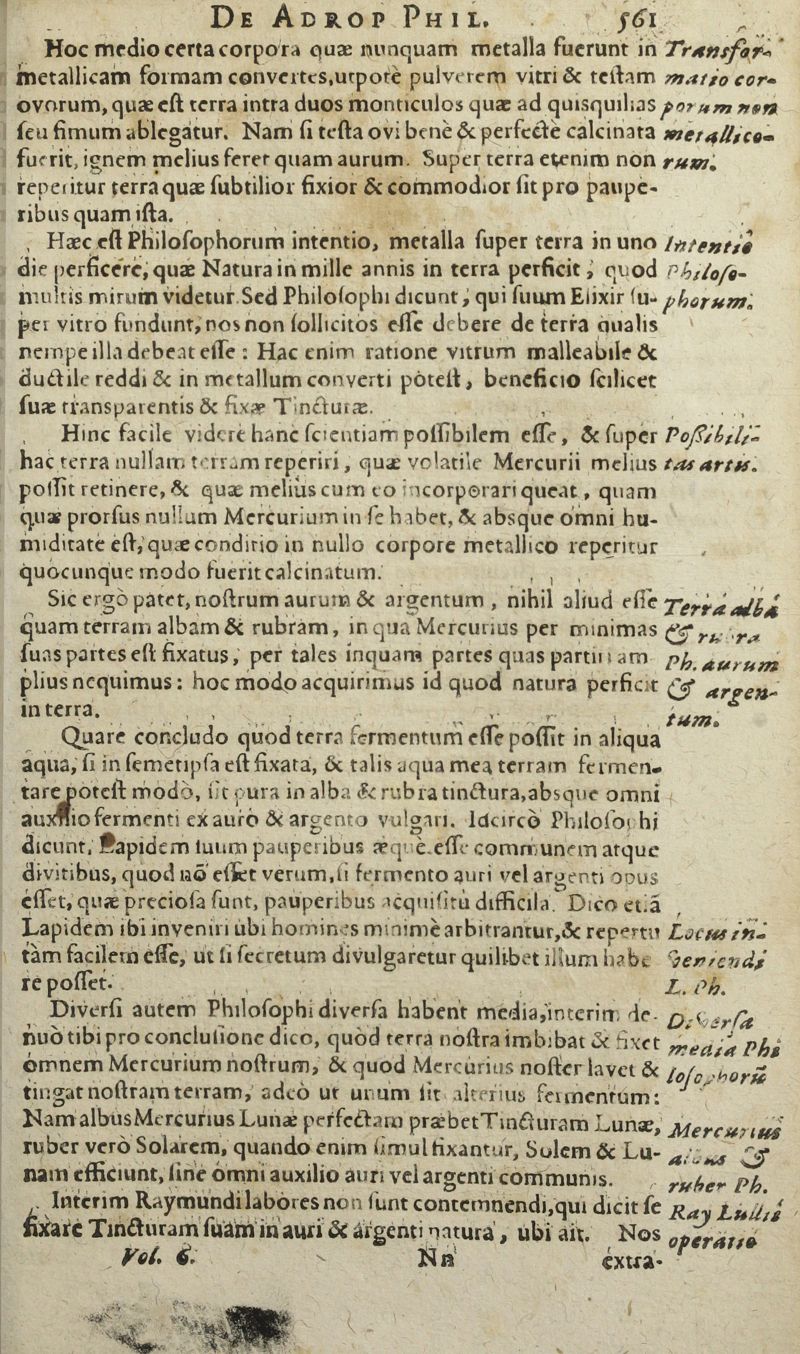 DE ADROP PHIL. 561
Hoc medio certa corpora quæ nunquam metalla fuerunt in Transfor-
metallicam formam convertes, utpote pulverem vitri & testam matio cor-
ovorum, quæ est terra intra duos monticulos quæ ad quisquilias porum non
seu fimum ablegatur. Nam si testa ovi bene & perfecte calcinata metallico-
fuerit, ignem melius feret quam aurum. Super terra etenim non rum.
reperitur terra quæ subtilior fixior & commodior sit pro paupe-
ribus quam ista.
Hæc est Philosophorum intentio, metalla super terra in uno Intentio
die perficere, quæ Natura in mille annis in terra perficit, quod Philoso-
multis mirum videtur. Sed Philosophi dicunt, qui suum Elixir su- phorum.
per vitro fundunt, nos non sollicitos esse debere de terra qualis
nempe illa debeat esse : Hac enim ratione vitrum malleabile &
ductile reddi & in metallum converti potest, beneficio scilicet
suæ transparentis & fixæ Tincturæ.
Hinc facile videre hanc scientiam possibilem esse, & super Possibili-
hac terra nullam terram reperiri, quæ volatile Mercurii melius tas artis.
possit retinere, & quæ melius cum eo incorporari queat, quam
quæ prorsus nullum Mercurium in se habet, & absque omni hu-
miditate est, quæ conditio in nullo corpore metallico reperitur
quocunque modo fuerit calcinatum.
Sic ergò patet, nostrum aurum & argentum, nihil aliud esse Terra alba
quam terram albam & rubram, in qua Mercurius per minimas & rubra
suas partes est fixatus, per tales inquam partes quas partiri am- Ph. aurum
plius nequimus : hoc modo acquirimus id quod natura perficit & argen-
in terra. tum.
Quare concludo quòd terra fermentum esse possit in aliqua
aqua, si in semetipsa est fixata, & talis aqua mea terram fermen-
tare potest modò, sit pura in alba & rubra tinctura, absque omni
auxilio fermenti ex auro & argento vulgari. Idcircò Philosophi
dicunt, Lapidem suum pauperibus æquè esse communem atque
divitibus, quod nō esset verum, si fermento auri vel argenti opus
esset, quæ preciosa sunt, pauperibus acquisitu difficila. Dico etiā
Lapidem ibi inveniri ubi homines minimè arbitrantur, & repertu Locus in-
tàm facilem esse, ut si secretum divulgaretur quilibet illum habe- veniendi
re posset. L. Ph.
Diversi autem Philosophi diversa habent media, interim de- Diversa
nuò tibi pro conclusione dico, quòd terra nostra imbibat & fixet media Phi
omnem Mercurium nostrum, & quod Mercurius noster lavet & losophorū
tingat nostram terram, adeò ut unum sit alterius fermentum :
Nam albus Mercurius Lunæ perfectam præbet Tincturam Lunæ, Mercurius
ruber verò Solarem, quando enim simul fixantur, Solem & Lu- albus &
nam efficiunt, sine omni auxilio auri vel argenti communis. ruber Ph.
Interim Raymundi labores non sunt contemnendi, qui dicit se Ray Lullii
fixare Tincturam suam in auri & argenti natura, ubi ait. Nos operatio
Vol. 6. Nn extra-